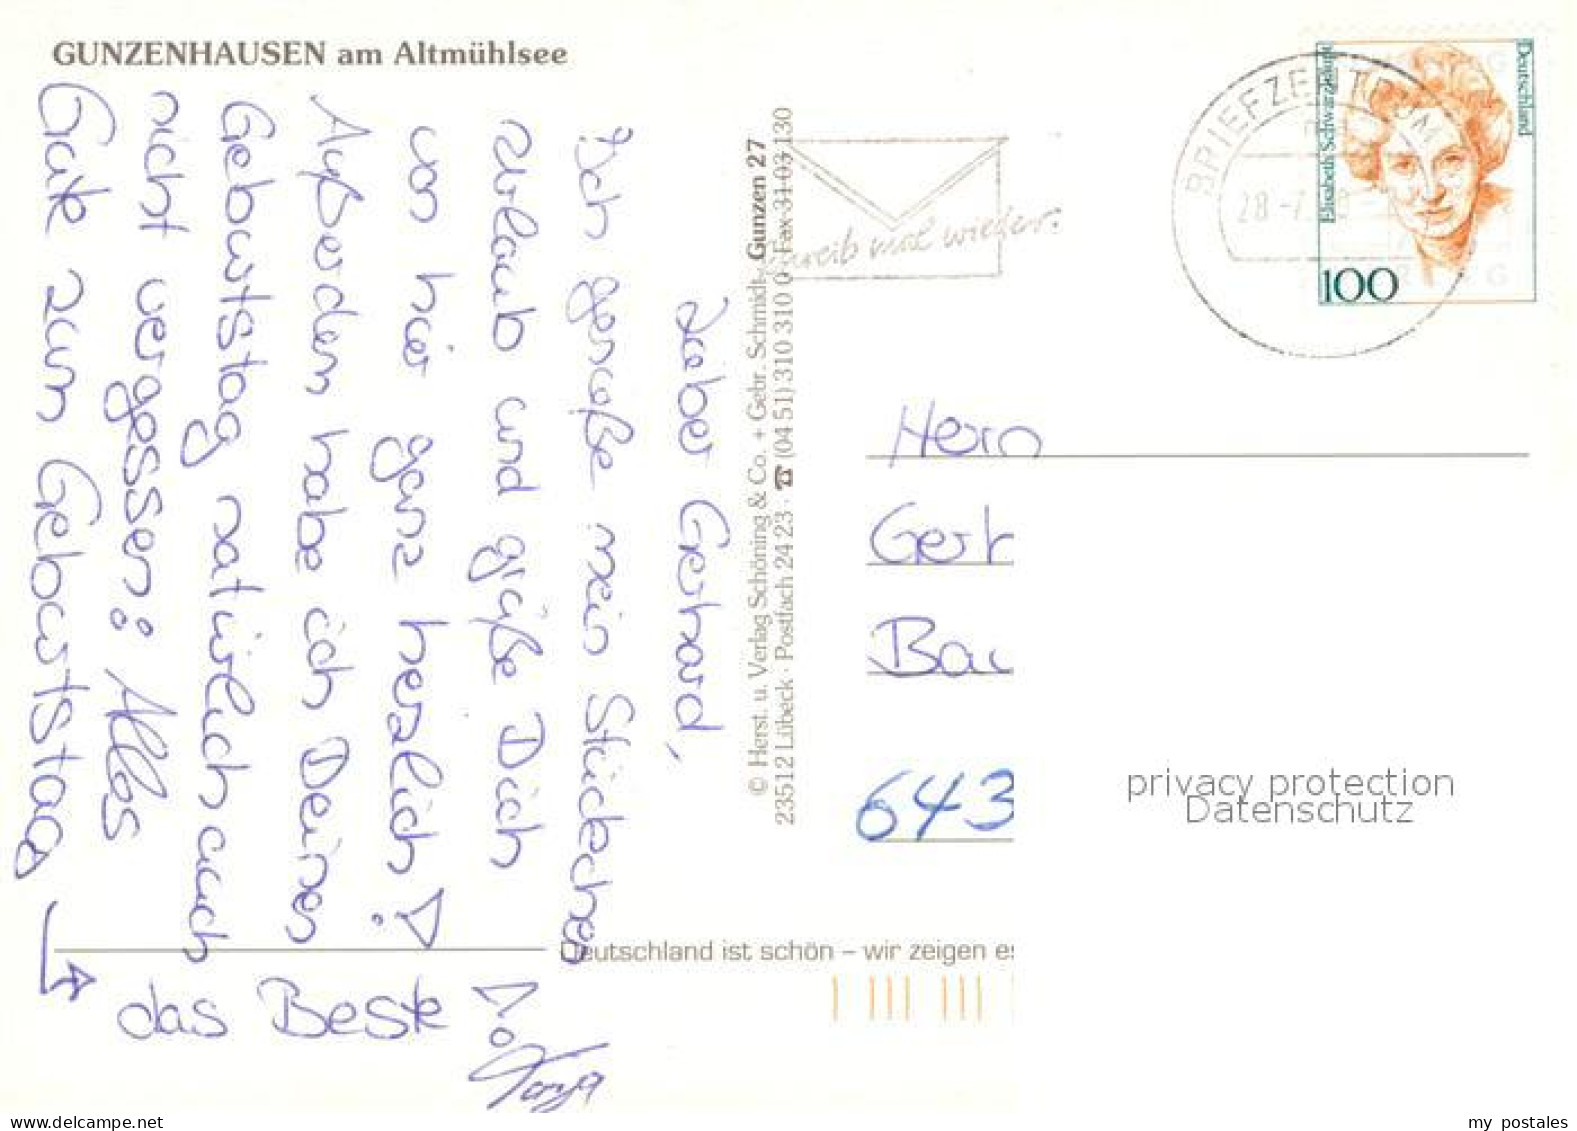 GUNZENHAUSEN am Altmühlsee
Lieber Gerhard,
Ich genieße mein Stückchen
Urlaub und grüße Dich
von hier ganz herzlich!
Außerdem habe ich Deinen
Geburtstag natürlich auch
nicht vergessen: Alles
Gute zum Geburtstag
das Beste
Tanja
© Herst. u. Verlag Schöning & Co. + Gebr. Schmidt, Gunzen 27
23512 Lübeck · Postfach 24 23 · ☎ (04 51) 310 310 0 · Fax 31 03 130
Schreib mal wieder.
BRIEFZENTRUM
28.-7.
Deutschland
Elisabeth Schwarzhaupt
100
Herrn
Gerh
Bau
643
privacy protection
Datenschutz
Deutschland ist schön – wir zeigen es
www.delcampe.net
my postales